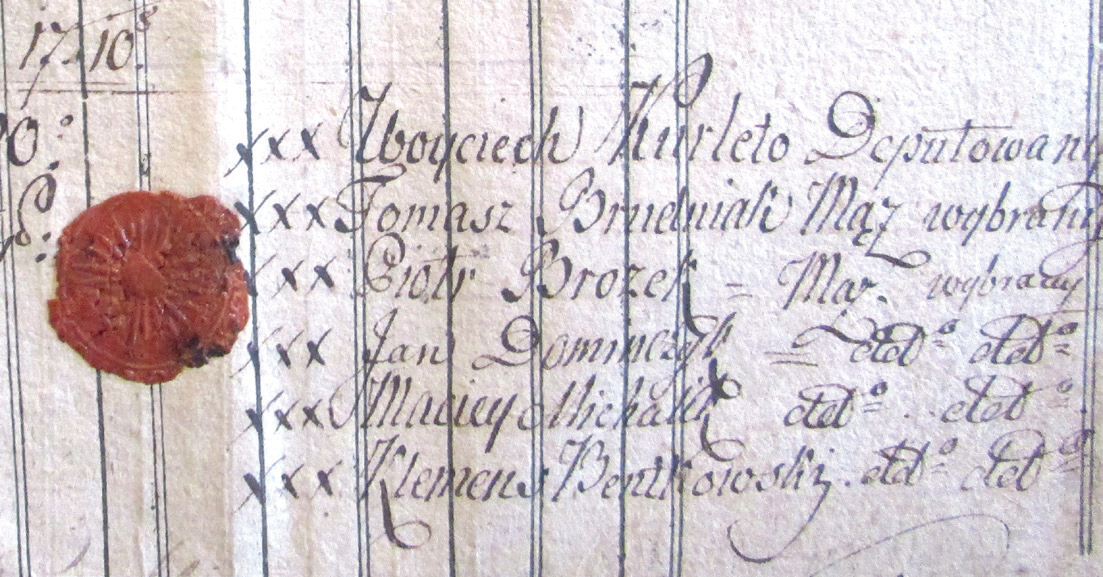 17 10
xxx Woyciech Kurleto Deputowany
xxx Tomasz Brudniak Mąż wybrany
xxx Piotr Brozek = Mąż wybrany
xxx Jan Dominczyk = detto detto
xxx Maciey Michalik detto detto
xxx Klemens Bentkowski detto detto